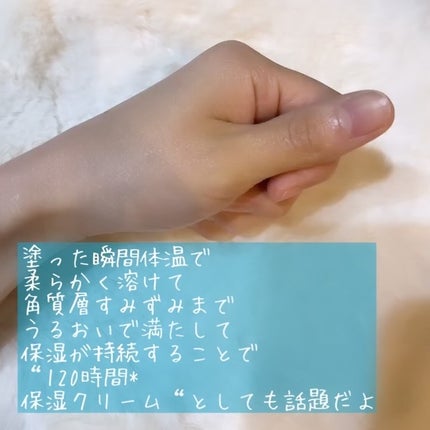 塗った瞬間体温で
柔らかく溶けて
角質層すみずみまで
うるおいで満たして
保湿が持続することで
“120時間*
保湿クリーム“としても話題だよ